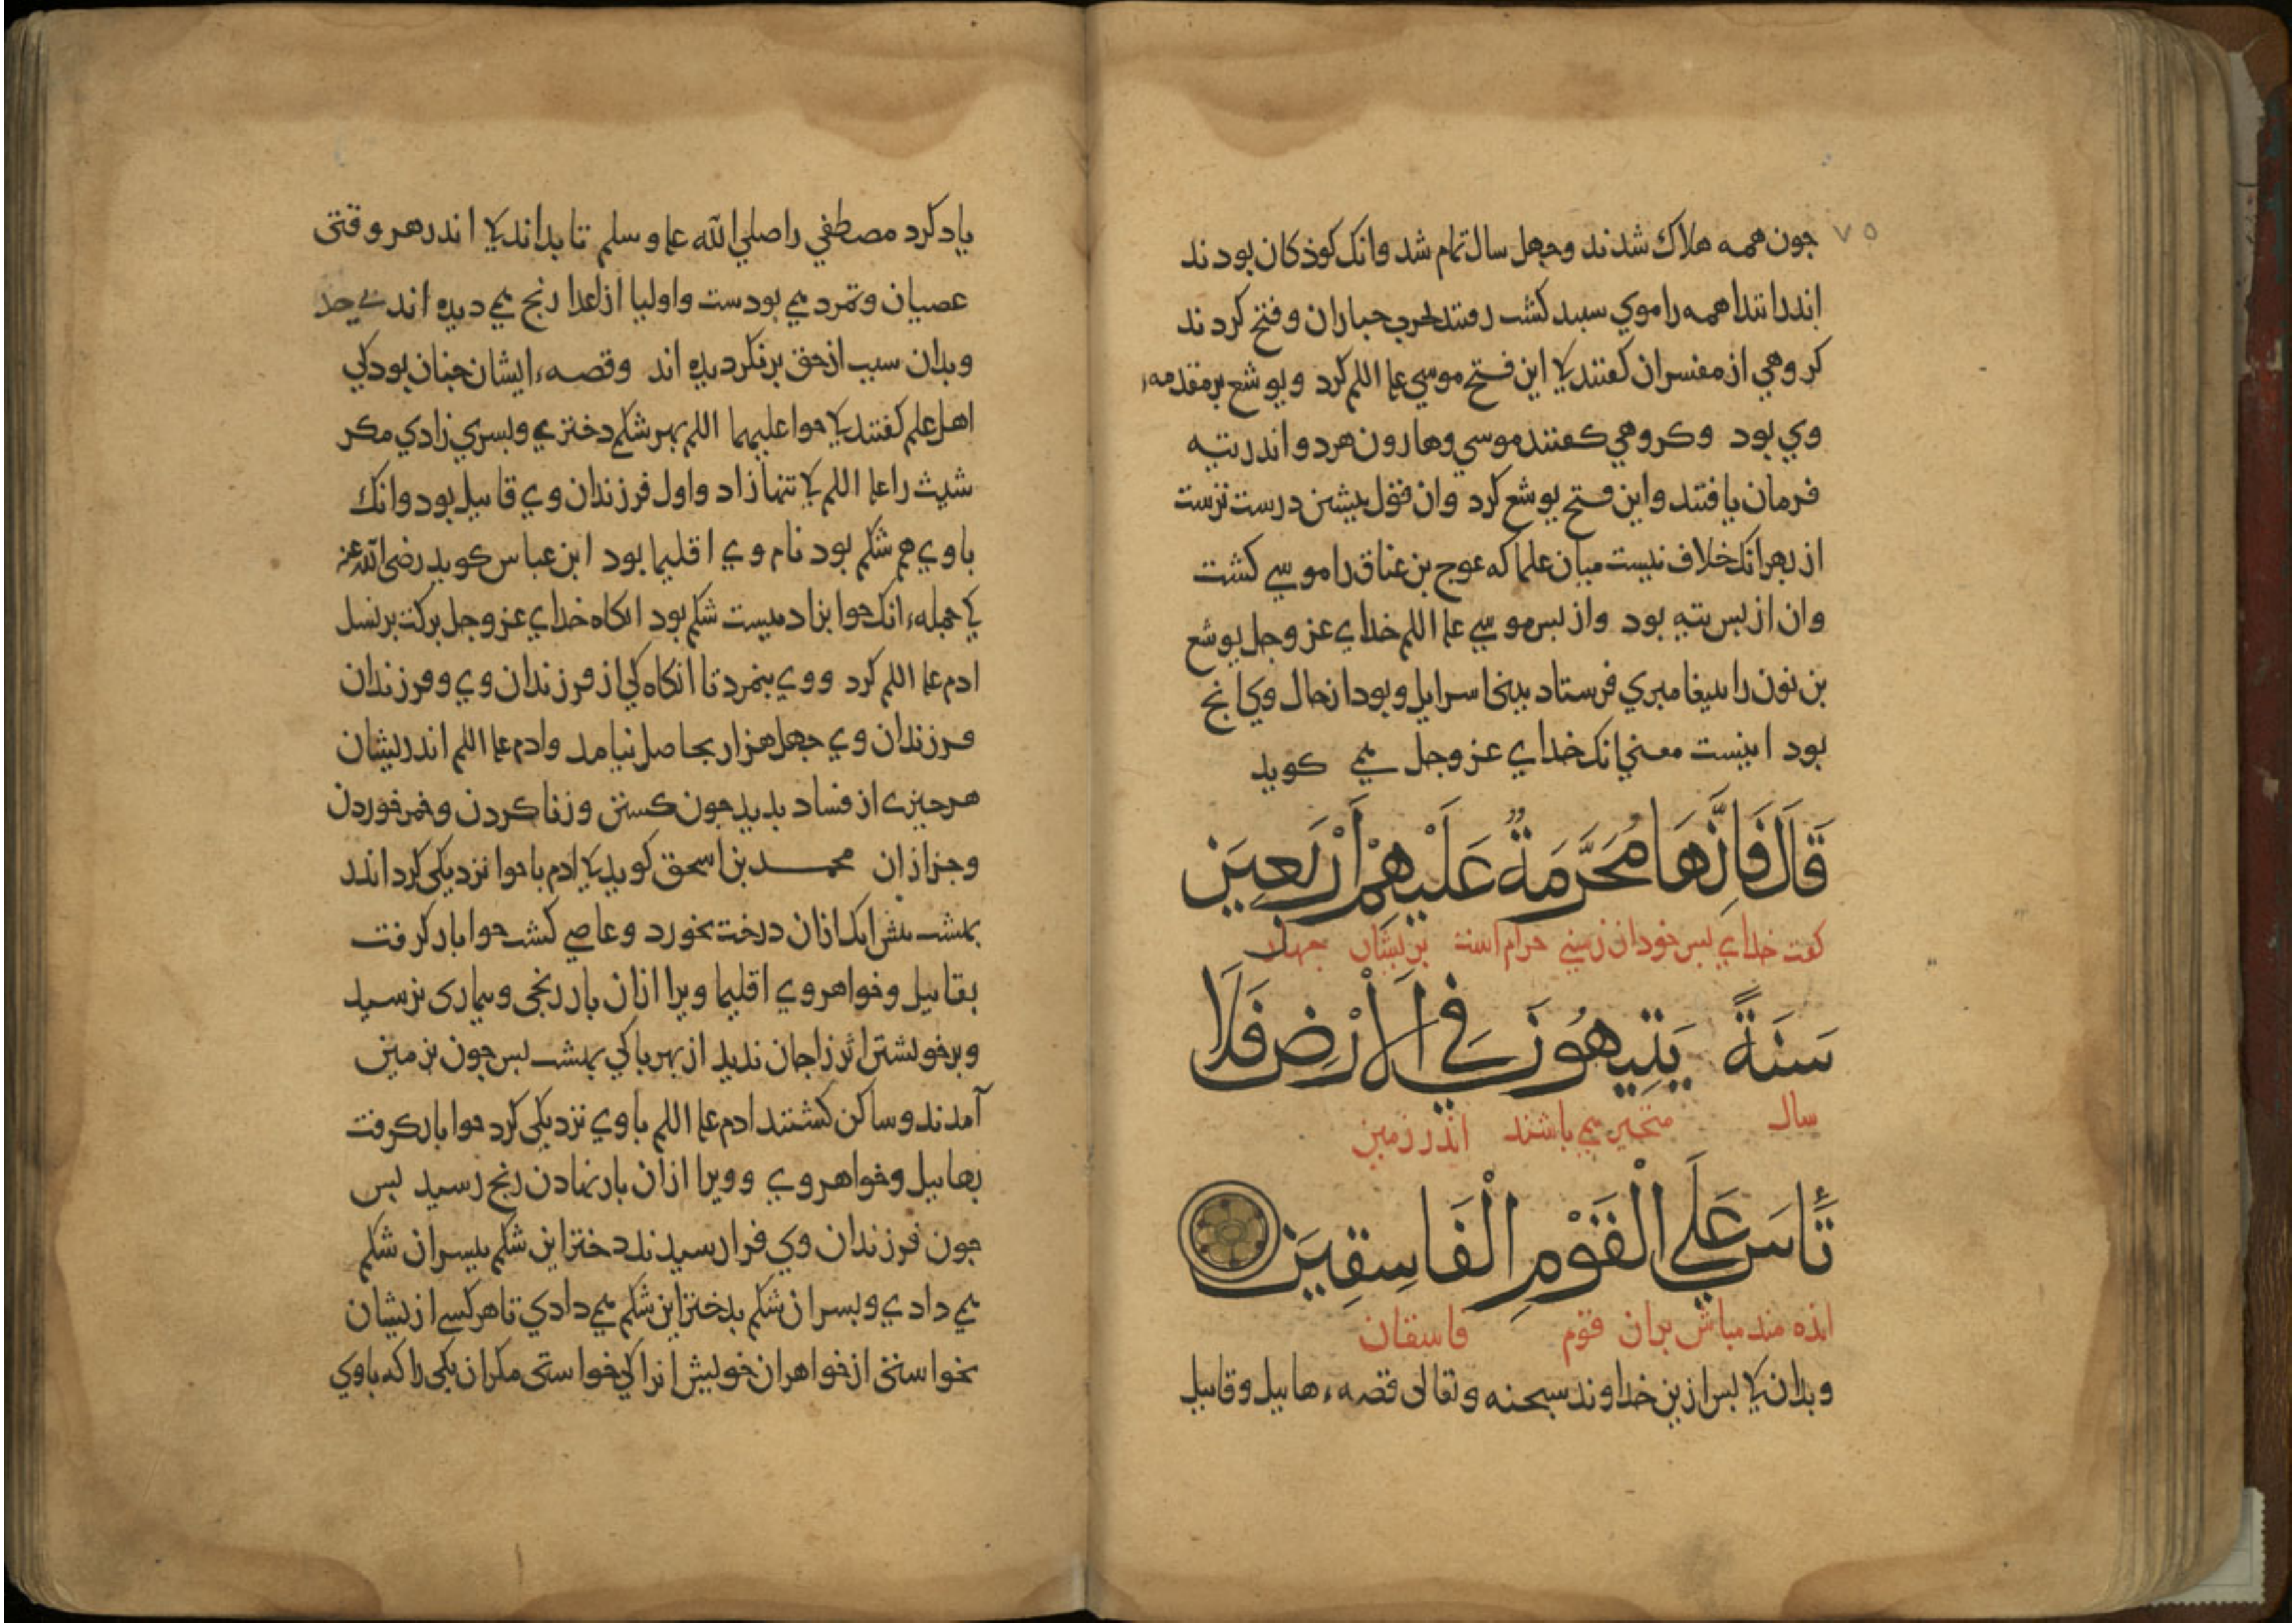 ٧٥
جون همه هلاك شدند وجهل سال تمام شد وانک کوذکان بودند
اندر انتدا همه را موي سبید کشت رفتند لحرب جباران وفتح کردند
کروهي از مفسران کفتند کی این فتح موسي علیه السلم کرد ویوشع بر مقدمهء
وي بود وکروهي کفتند موسي وهارون هردو اندر تیه
فرمان یافتند واین فتح یوشع کرد وان قول بیشین درست ترست
از بهر انک خلاف نیست میان علما که عوج بن عناق را موسي کشت
وان از بس تیه بود واز بس موسي علیه السلم خداي عز وجل یوشع
بن نون را بیغامبري فرستاد ببني اسرایل وبود از حال وي انج
بود اینست معني انک خداي عز وجل مي کوید
قَالَ فَاِنَّهَا مُحَرَّمَةٌ عَلَيْهِمْ اَرْبَعِينَ
کفت خداي بس خود ان زمیني حرام است بریشان جهل
سَنَةً يَتِيهُونَ فِي الْاَرْضِ فَلَا
سال متحیر مي باشند اندر زمین
تَأْسَ عَلَي الْقَوْمِ الْفَاسِقِينَ
انده مند مباش بران قوم فاسقان
وبدان کی بس ازین خداوند سبحنه وتعالى قصهء هابیل وقابیل
یاد کرد مصطفي را صلي الله علیه وسلم تا بداند کی اندر هر وقتی
عصیان وتمرد مي بودست واولیا از اعدا رنج مي دیده اند بي حد
وبدان سبب از حق برنکردیده اند وقصهء ایشان جنان بود کي
اهل علم کفتند کی حوا علیهما السلم بهر شکم دختري وبسري زادي مکر
شیث را علیه السلم کی تنها زاد واول فرزندان وي قابیل بود وانک
با وي هم شکم بود نام وي اقلیما بود ابن عباس کوید رضی الله عنه
کي جملهء انک حوا بزاد بیست شکم بود انکاه خداي عز وجل برکت بر نسل
ادم علیه السلم کرد ووي بنمرد تا انکاه کي از فرزندان وي وفرزندان
فرزندان وي جهل هزار بحاصل نیامد وادم علیه السلم اندریشان
هرجیزي از فساد بدید جون کشتن وزنا کردن وخمر خوردن
وجز ازان محمد بن اسحق کوید کی ادم با حوا نزدیکی کرد اندر
بهشت بیش از انک ازان درخت بخورد وعاصي کشت حوا بار کرفت
بقابیل وخواهر وي اقلیما ویرا ازان بار رنجی وبیماری نرسید
وبر خویشتن اثر زاجان ندید از بهر باکي بهشت بس جون بزمین
آمدند وساکن کشتند ادم علیه السلم با وي نزدیکی کرد حوا بار کرفت
بهابیل وخواهر وي وویرا ازان بار نهادن رنج رسید بس
جون فرزندان وي فرا رسیدند دختر این شکم ببسر ان شکم
مي دادي وبسر ان شکم بدختر این شکم مي دادي تا هر کسي ازیشان
بخواستی از خواهران خویش انرا کي خواستی مکر ان یکی را که با وي